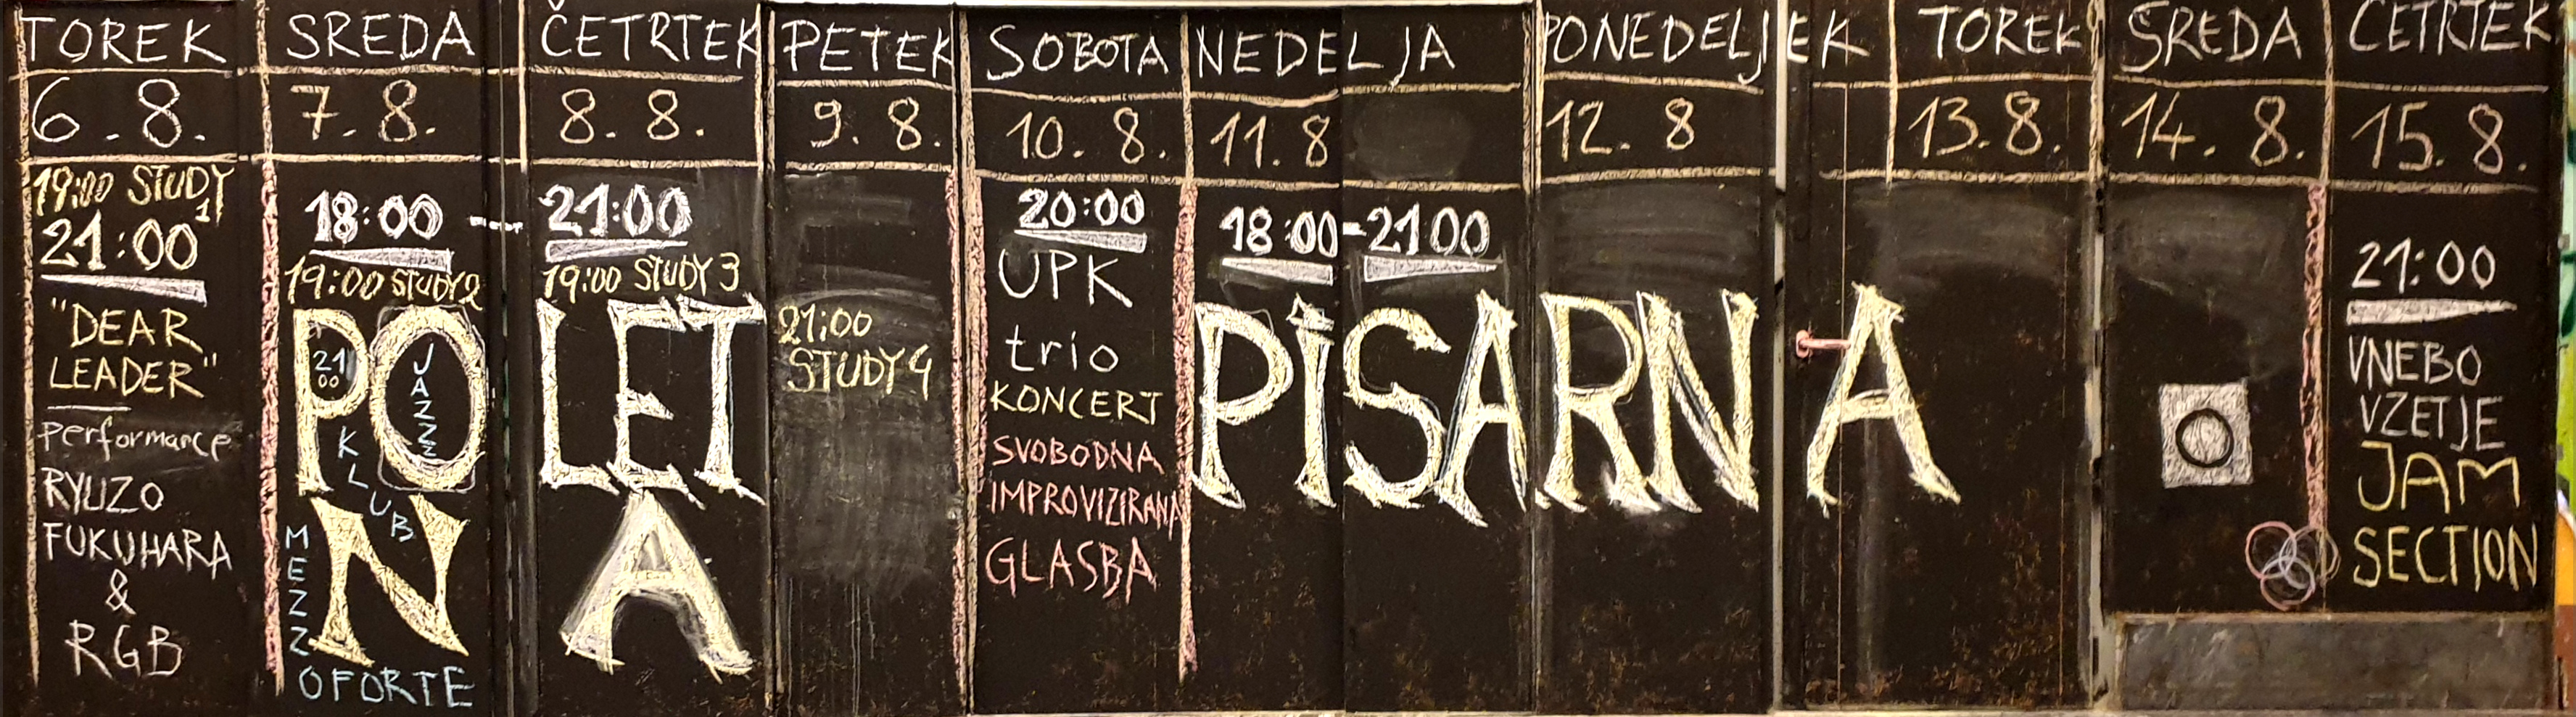 TOREK
6. 8.
19:00 STUDY 1
21:00
"DEAR
LEADER"
performance
RYUZO
FUKUHARA
&
RGB
SREDA
7. 8.
ČETRTEK
8. 8.
18:00 - 21:00
19:00 STUDY 2
19:00 STUDY 3
POLETNA
21 00
JAZZZZ
KLUB
MEZZOFORTE
PETEK
9. 8.
21:00
STUDY 4
SOBOTA
10. 8.
20:00
UPK
trio
KONCERT
SVOBODNA
IMPROVIZIRANA
GLASBA
NEDELJA
11. 8
PONEDELJEK
12. 8
TOREK
13. 8.
18:00-21 00
PISARNA
SREDA
14. 8.
ČETRTEK
15. 8.
21:00
VNEBO
VZETJE
JAM
SECTION